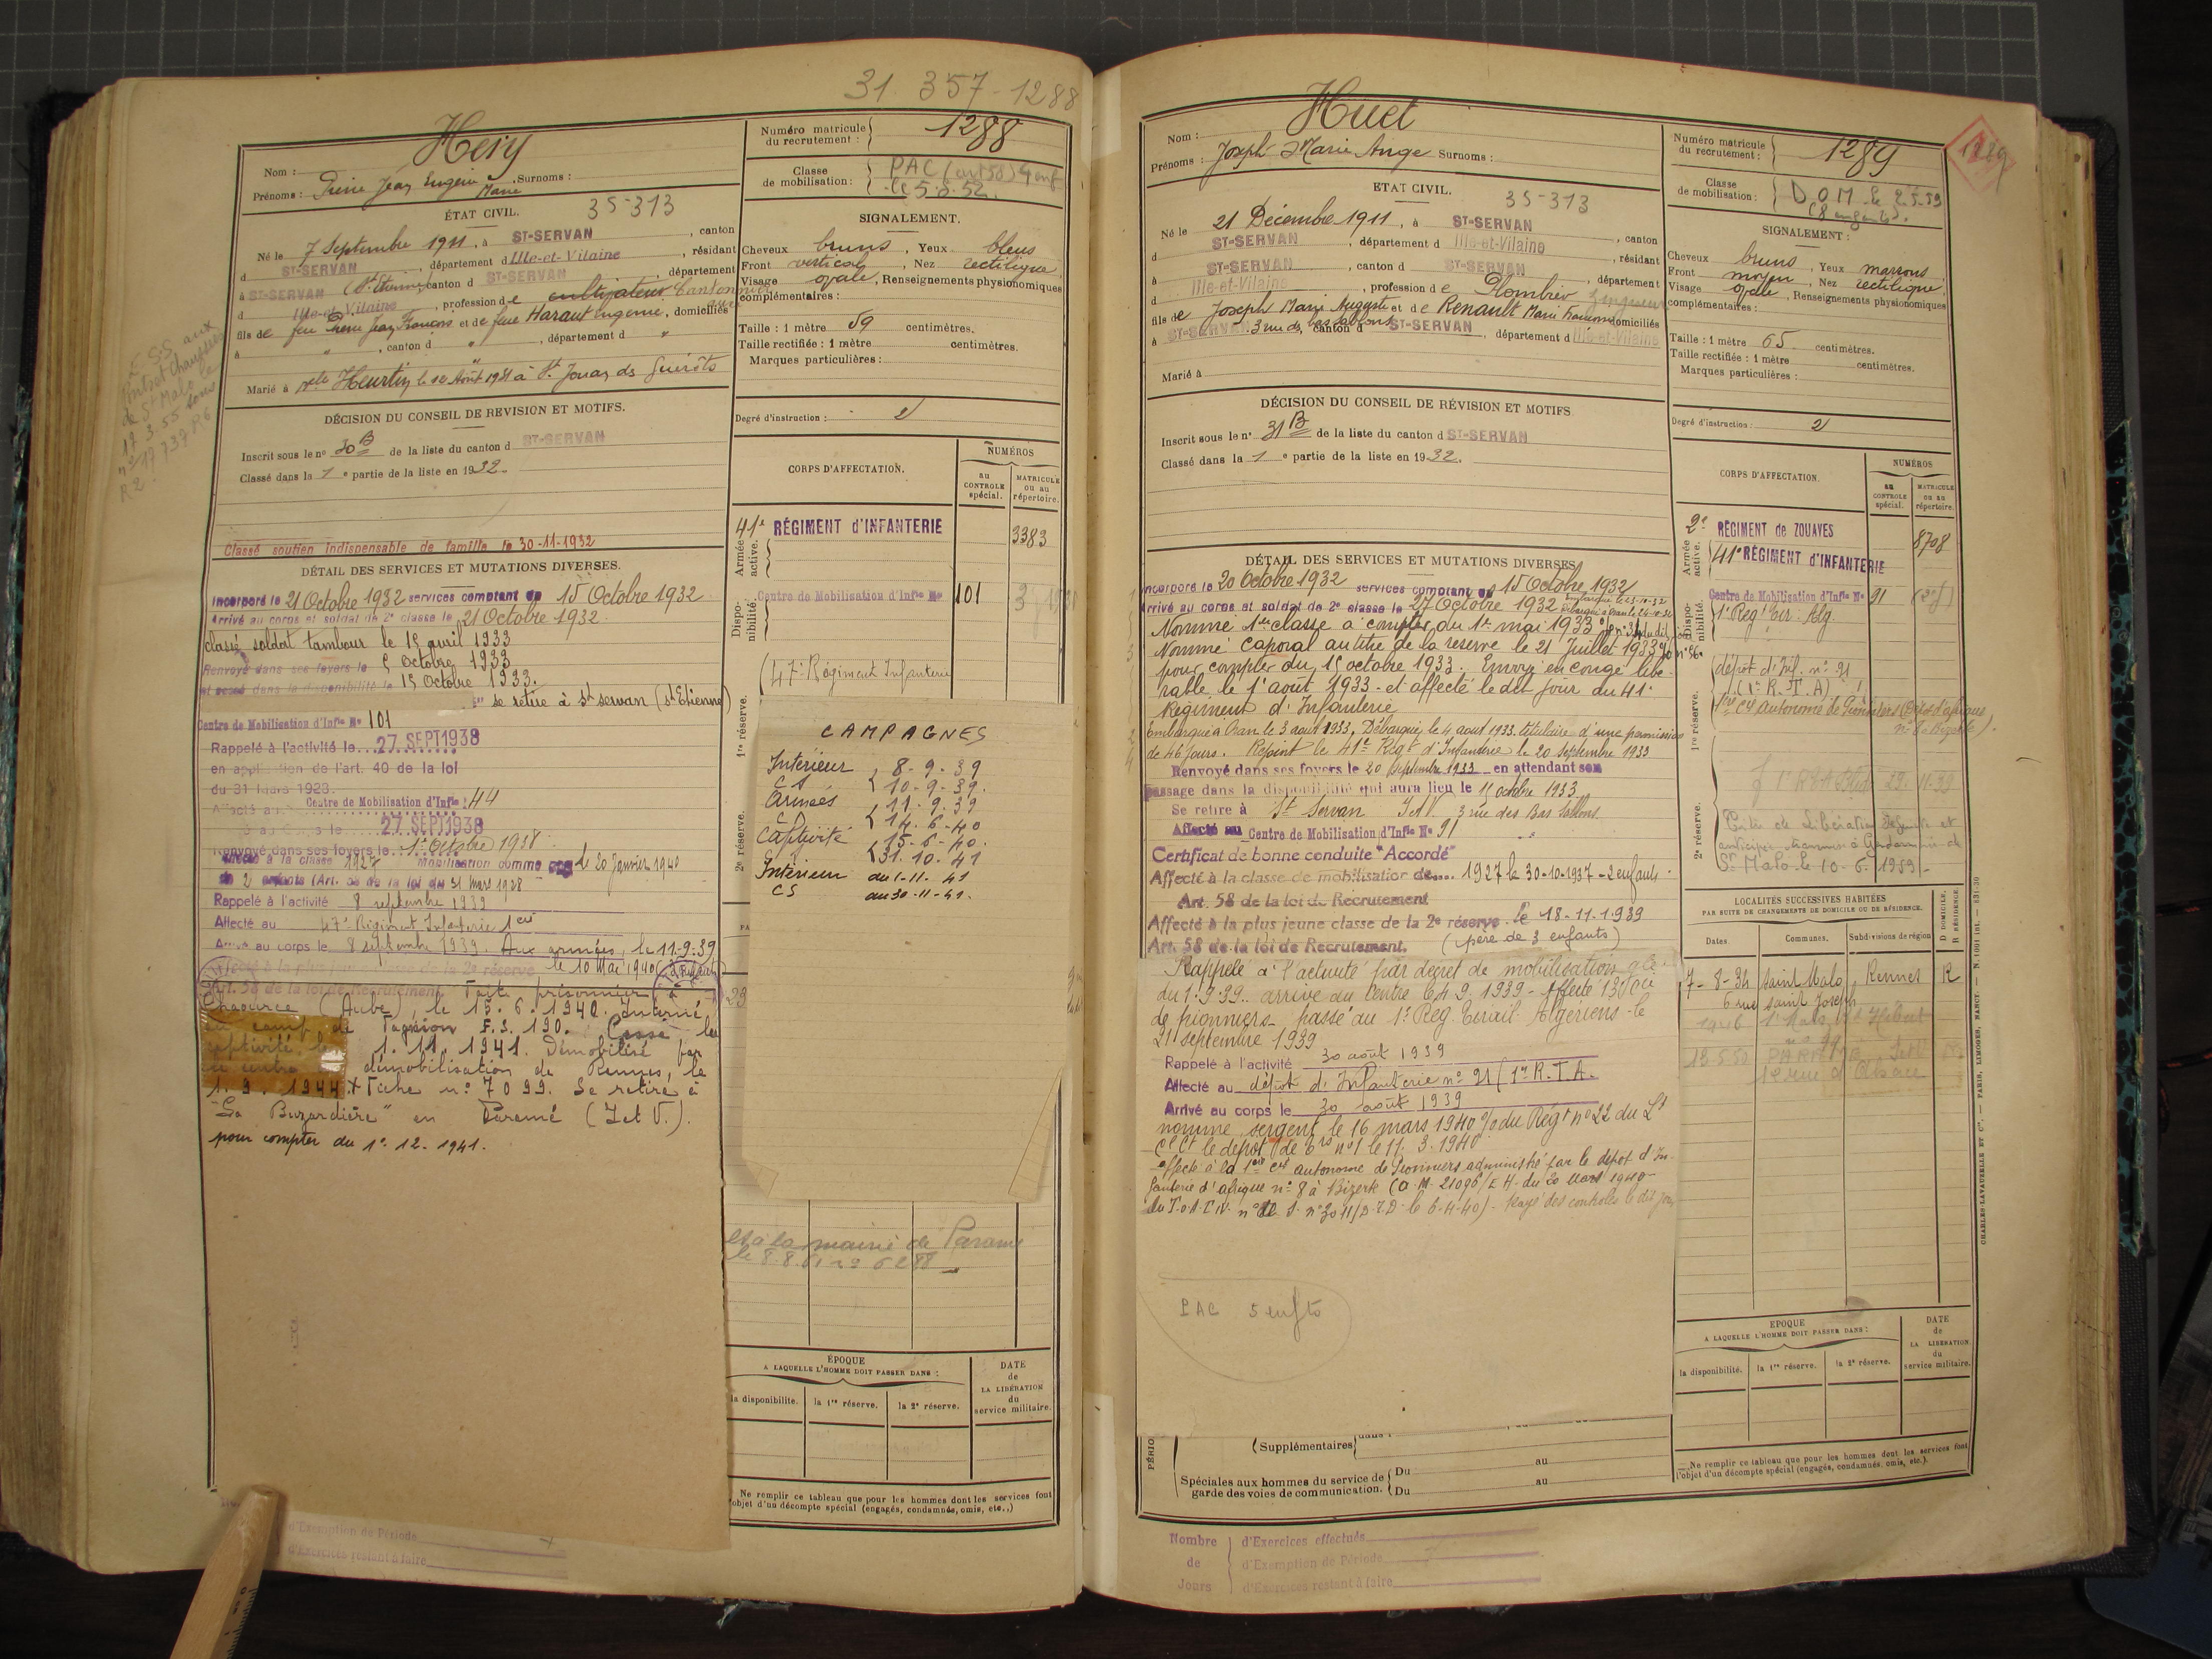 31 357-1288
Nom :
Prénoms : Pierre Jean Eugène Marie Surnoms :
Numéro matricule du recrutement : 1288
Classe de mobilisation : PAC (art 58) 4 enf
le 5.8.52.
ÉTAT CIVIL.
35-313
Né le 7 Septembre 1911, à ST-SERVAN, canton
d ST-SERVAN, département d Ille-et-Vilaine, résidant
à ST-SERVAN (St Etienne) canton d ST-SERVAN, département
d Ille-et-Vilaine, profession de cultivateur Cantonnier
fils de feu Pierre Jean François et de feue Haraut Eugénie, domiciliés
à " , canton d " , département d "
Marié à Delle Heurtin le Août 1931 à St Jouan des Guérêts
SIGNALEMENT.
Cheveux bruns, Yeux bleus
Front vertical, Nez rectiligne
Visage ovale, Renseignements physionomiques
complémentaires :
Taille : 1 mètre 59 centimètres.
Taille rectifiée : 1 mètre centimètres.
Marques particulières :
Degré d'instruction : 2
S.S. aux
Ponts et Chaussées
de St Malo le
19.3.55
DÉCISION DU CONSEIL DE REVISION ET MOTIFS.
Inscrit sous le no 30 B de la liste du canton d ST-SERVAN
Classé dans la 1e partie de la liste en 1932.
Classé soutien indispensable de famille le 30-11-1932
DÉTAIL DES SERVICES ET MUTATIONS DIVERSES.
Incorporé le 21 Octobre 1932 services comptant du 15 Octobre 1932
Arrivé au corps et soldat de 2e classe le 21 Octobre 1932.
classé soldat tambour le 15 avril 1933
Renvoyé dans ses foyers le 5 Octobre 1933
et passé dans la disponibilité le 15 Octobre 1933.
se retire à St servan (St Etienne)
Centre de Mobilisation d'Infie No 101
Rappelé à l'activité le 27 SEPT 1938
en application de l'art. 40 de la loi
du 31 Mars 1928.
Affecté au Centre de Mobilisation d'Infie 44
27 SEPT 1938
Renvoyé dans ses foyers le 1er Octobre 1938
Affecté à la classe 1927 Mobilisation comme père le 20 Janvier 1940
de 2 enfants (Art. 58 de la loi du 31 Mars 1928
Rappelé à l'activité 8 septembre 1939
Affecté au 47e Régiment Infanterie 1
Arrivé au corps le 8 septembre 1939. Aux armées, le 11-9-39
Affecté à la plus jeune classe de la 2e réserve le 10 Mai 1940
Art. 58 de la loi de Recrutement Fait prisonnier à
Chaource (Aube), le 15.6.1940. Interné
au camp de Tagnion F.S. 190. Cessé la
captivité le 1.11.1941. Démobilisé par
le centre démobilisation de Rennes, le
1.9.1944 + Fiche no 7099. Se retire à
"La Buzardière" en Paramé (I et V.).
pour compter du 1er.12.1941.
CORPS D'AFFECTATION.
NUMÉROS
au CONTROLE spécial.
MATRICULE ou au répertoire.
Armée active.
41e RÉGIMENT d'INFANTERIE 3383
Disponibilité.
Centre de Mobilisation d'Infie No 101
1re réserve.
(47e Régiment Infanterie
2e réserve.
CAMPAGNES
Intérieur 8-9-39
CS 10-9-39.
Armées 11.9.39
CD 14-6-40
Captivité 15-6-40.
31.10.41
Intérieur du 1-11-41
CS au 30-11-41.
23
à la mairie de Paramé
le 8.8.61 no 6288
ÉPOQUE
A LAQUELLE L'HOMME DOIT PASSER DANS :
la disponibilité.
la 1re réserve.
la 2e réserve.
DATE de LA LIBÉRATION du service militaire.
Ne remplir ce tableau que pour les hommes dont les services font
l'objet d'un décompte spécial (engagés, condamnés, omis, etc..)
d'Exemption de Période
d'Exercices restant à faire
Nom : Huet
Prénoms : Joseph Marie Ange Surnoms :
Numéro matricule du recrutement : 1289
1289
Classe de mobilisation : DOM le 2.5.59
(8 enfants).
ETAT CIVIL.
35-313
Né le 21 Décembre 1911, à ST-SERVAN, canton
d ST-SERVAN, département d Ille-et-Vilaine, résidant
à ST-SERVAN, canton d ST-SERVAN, département
d Ille-et-Vilaine, profession de Plombier zingueur
fils de Joseph Marie Auguste et de Renault Marie Françoise domiciliés
à ST-SERVAN 3 rue des bas sablons canton d ST-SERVAN, département d Ille-et-Vilaine
Marié à
SIGNALEMENT :
Cheveux bruns, Yeux marrons
Front moyen, Nez rectiligne
Visage ovale, Renseignements physionomiques
complémentaires :
Taille : 1 mètre 65 centimètres.
Taille rectifiée : 1 mètre centimètres.
Marques particulières :
Degré d'instruction : 2
DÉCISION DU CONSEIL DE RÉVISION ET MOTIFS
Inscrit sous le no 31 B de la liste du canton d ST-SERVAN
Classé dans la 1e partie de la liste en 1932.
DÉTAIL DES SERVICES ET MUTATIONS DIVERSES
Incorporé le 20 Octobre 1932 services comptant du 15 Octobre 1932
Arrivé au corps et soldat de 2e classe le 27 Octobre 1932
Nommé 1ère classe à compter du 1er mai 1933
Nommé Caporal au titre de la réserve le 21 Juillet 1933
pour compter du 15 octobre 1933. Envoyé en congé libé-
rable le 1er août 1933 et affecté le dit jour au 41e
Régiment d'Infanterie
Embarqué à Oran le 3 août 1933, Débarqué le 4 août 1933. titulaire d'une permission
de 46 jours. Rejoint le 41e Régt d'Infanterie le 20 Septembre 1933
Renvoyé dans ses foyers le 20 Septembre 1933 en attendant son
passage dans la disponibilité qui aura lieu le 15 octobre 1933
Se retire à St Servan I et V. 3 rue des Bas Sablons.
Affecté au Centre de Mobilisation d'Infie No 91
Certificat de bonne conduite "Accordé"
Affecté à la classe de mobilisation de 1927 le 30-10-1937 - 2 enfants
Art. 58 de la loi de Recrutement
Affecté à la plus jeune classe de la 2e réserve. le 18-11-1939
Art. 58 de la loi de Recrutement. (père de 3 enfants)
Rappelé à l'activité par décret de mobilisation gle
du 1.9.39.. arrivé au centre le 4.9.1939 - Affecté
de pionniers - passé au 1er Reg. Tirail. Algériens le
21 septembre 1939
Rappelé à l'activité 30 août 1939
Affecté au dépôt d'Infanterie no 21 (1er R.T.A.
Arrivé au corps le 30 août 1939
nommé sergent le 16 mars 1940 du Régt no 22 du Lt
Cel Ct le dépôt de no 1 le 11.3.1940
affecté à la 1ère Cie autonome de Pionniers administré par le dépôt d'In-
fanterie d'afrique no 8 à Bizerte (O.M. 21096/E.H. du 20 mars 1940
Rayé des contrôles le dit jour
PAC 5 enfts
CORPS D'AFFECTATION
NUMÉROS
au CONTROLE spécial.
MATRICULE ou au répertoire.
Armée active.
2e RÉGIMENT de ZOUAVES 8708
41e RÉGIMENT D'INFANTERIE
Disponibilité.
Centre de Mobilisation d'Infie No 91
1er Regt Tir. Alg
1re réserve.
dépôt d'Inf. no 21
(1er R.T.A)
1ère Cie Autonome de Pionniers (Dépôt d'afrique
no 8 à Bizerte).
2e réserve.
Carte de Libération définitive et
anticipée transmise à Gendarmerie de
St Malo le 10.6.1959.
LOCALITÉS SUCCESSIVES HABITÉES
PAR SUITE DE CHANGEMENTS DE DOMICILE OU DE RÉSIDENCE.
Dates.
Communes.
Subdivisions de région
D DOMICILE. R RÉSIDENCE.
7-8-34 Saint Malo Rennes R
6 rue Saint Joseph
1946
13.5.50
ÉPOQUE
A LAQUELLE L'HOMME DOIT PASSER DANS :
la disponibilité.
la 1re réserve.
la 2e réserve.
DATE de LA LIBÉRATION du service militaire.
Ne remplir ce tableau que pour les hommes dont les services font
l'objet d'un décompte spécial (engagés, condamnés, omis, etc.).
CHARLES-LAVAUZELLE ET Cie. — PARIS, LIMOGES, NANCY.
PÉRIO
(Supplémentaires)
Spéciales aux hommes du service de garde des voies de communication.
Du au
Du au
Nombre de Jours
d'Exercices effectués
d'Exemption de Période
d'Exercices restant à faire